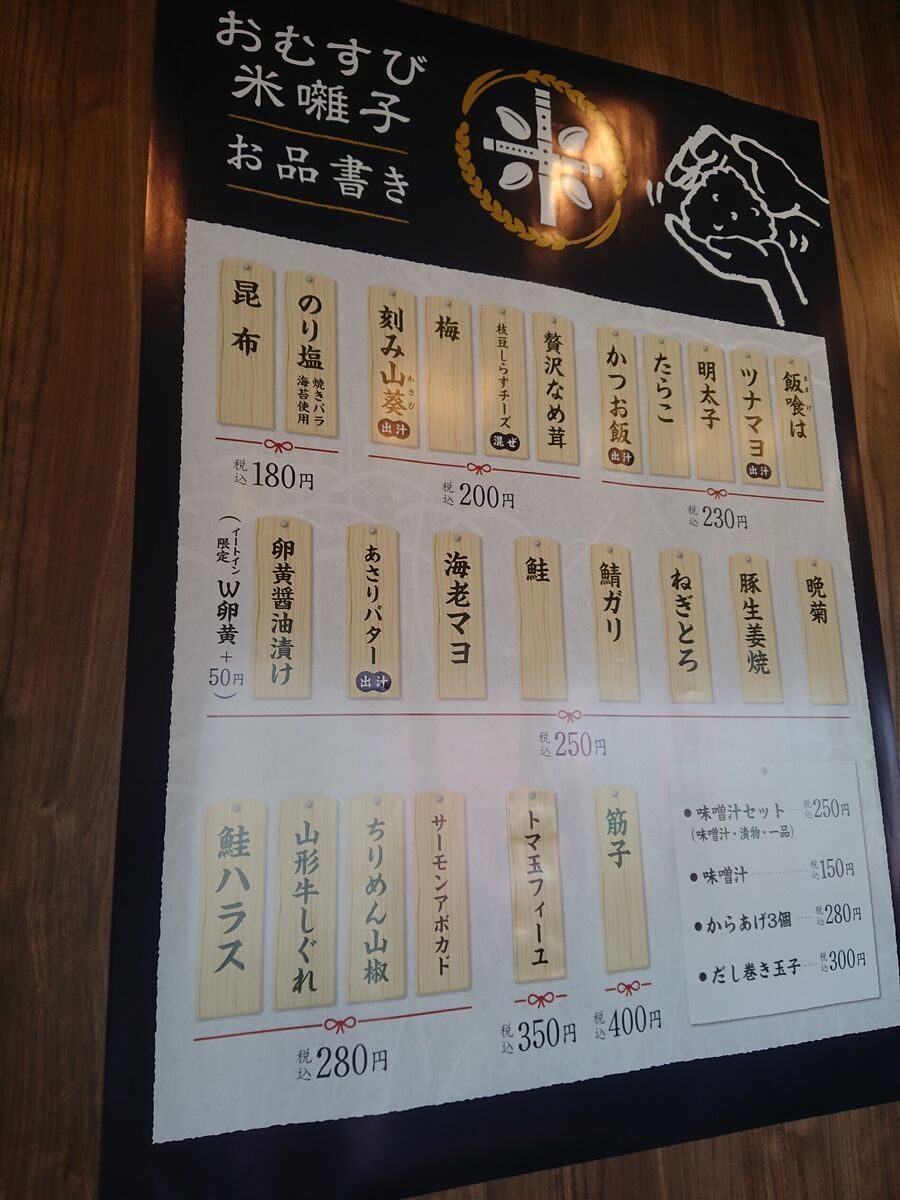 おむすび
米囃子
お品書き
米
昆布
のり塩
焼きバラ
海苔使用
税込180円
刻み山葵
わさび
出汁
梅
枝豆しらすチーズ
混ぜ
贅沢なめ茸
税込200円
かつお飯
出汁
たらこ
明太子
ツナマヨ
出汁
飯喰は
ままけ
税込230円
(イートイン
限定
W卵黄+
50円)
卵黄醤油漬け
あさりバター
出汁
海老マヨ
鮭
鯖ガリ
ねぎとろ
豚生姜焼
晩菊
税込250円
鮭ハラス
山形牛しぐれ
ちりめん山椒
サーモンアボカド
税込280円
トマ玉フィーユ
税込350円
筋子
税込400円
●味噌汁セット……税込250円
(味噌汁・漬物・一品)
●味噌汁……税込150円
●からあげ3個……税込280円
●だし巻き玉子……税込300円